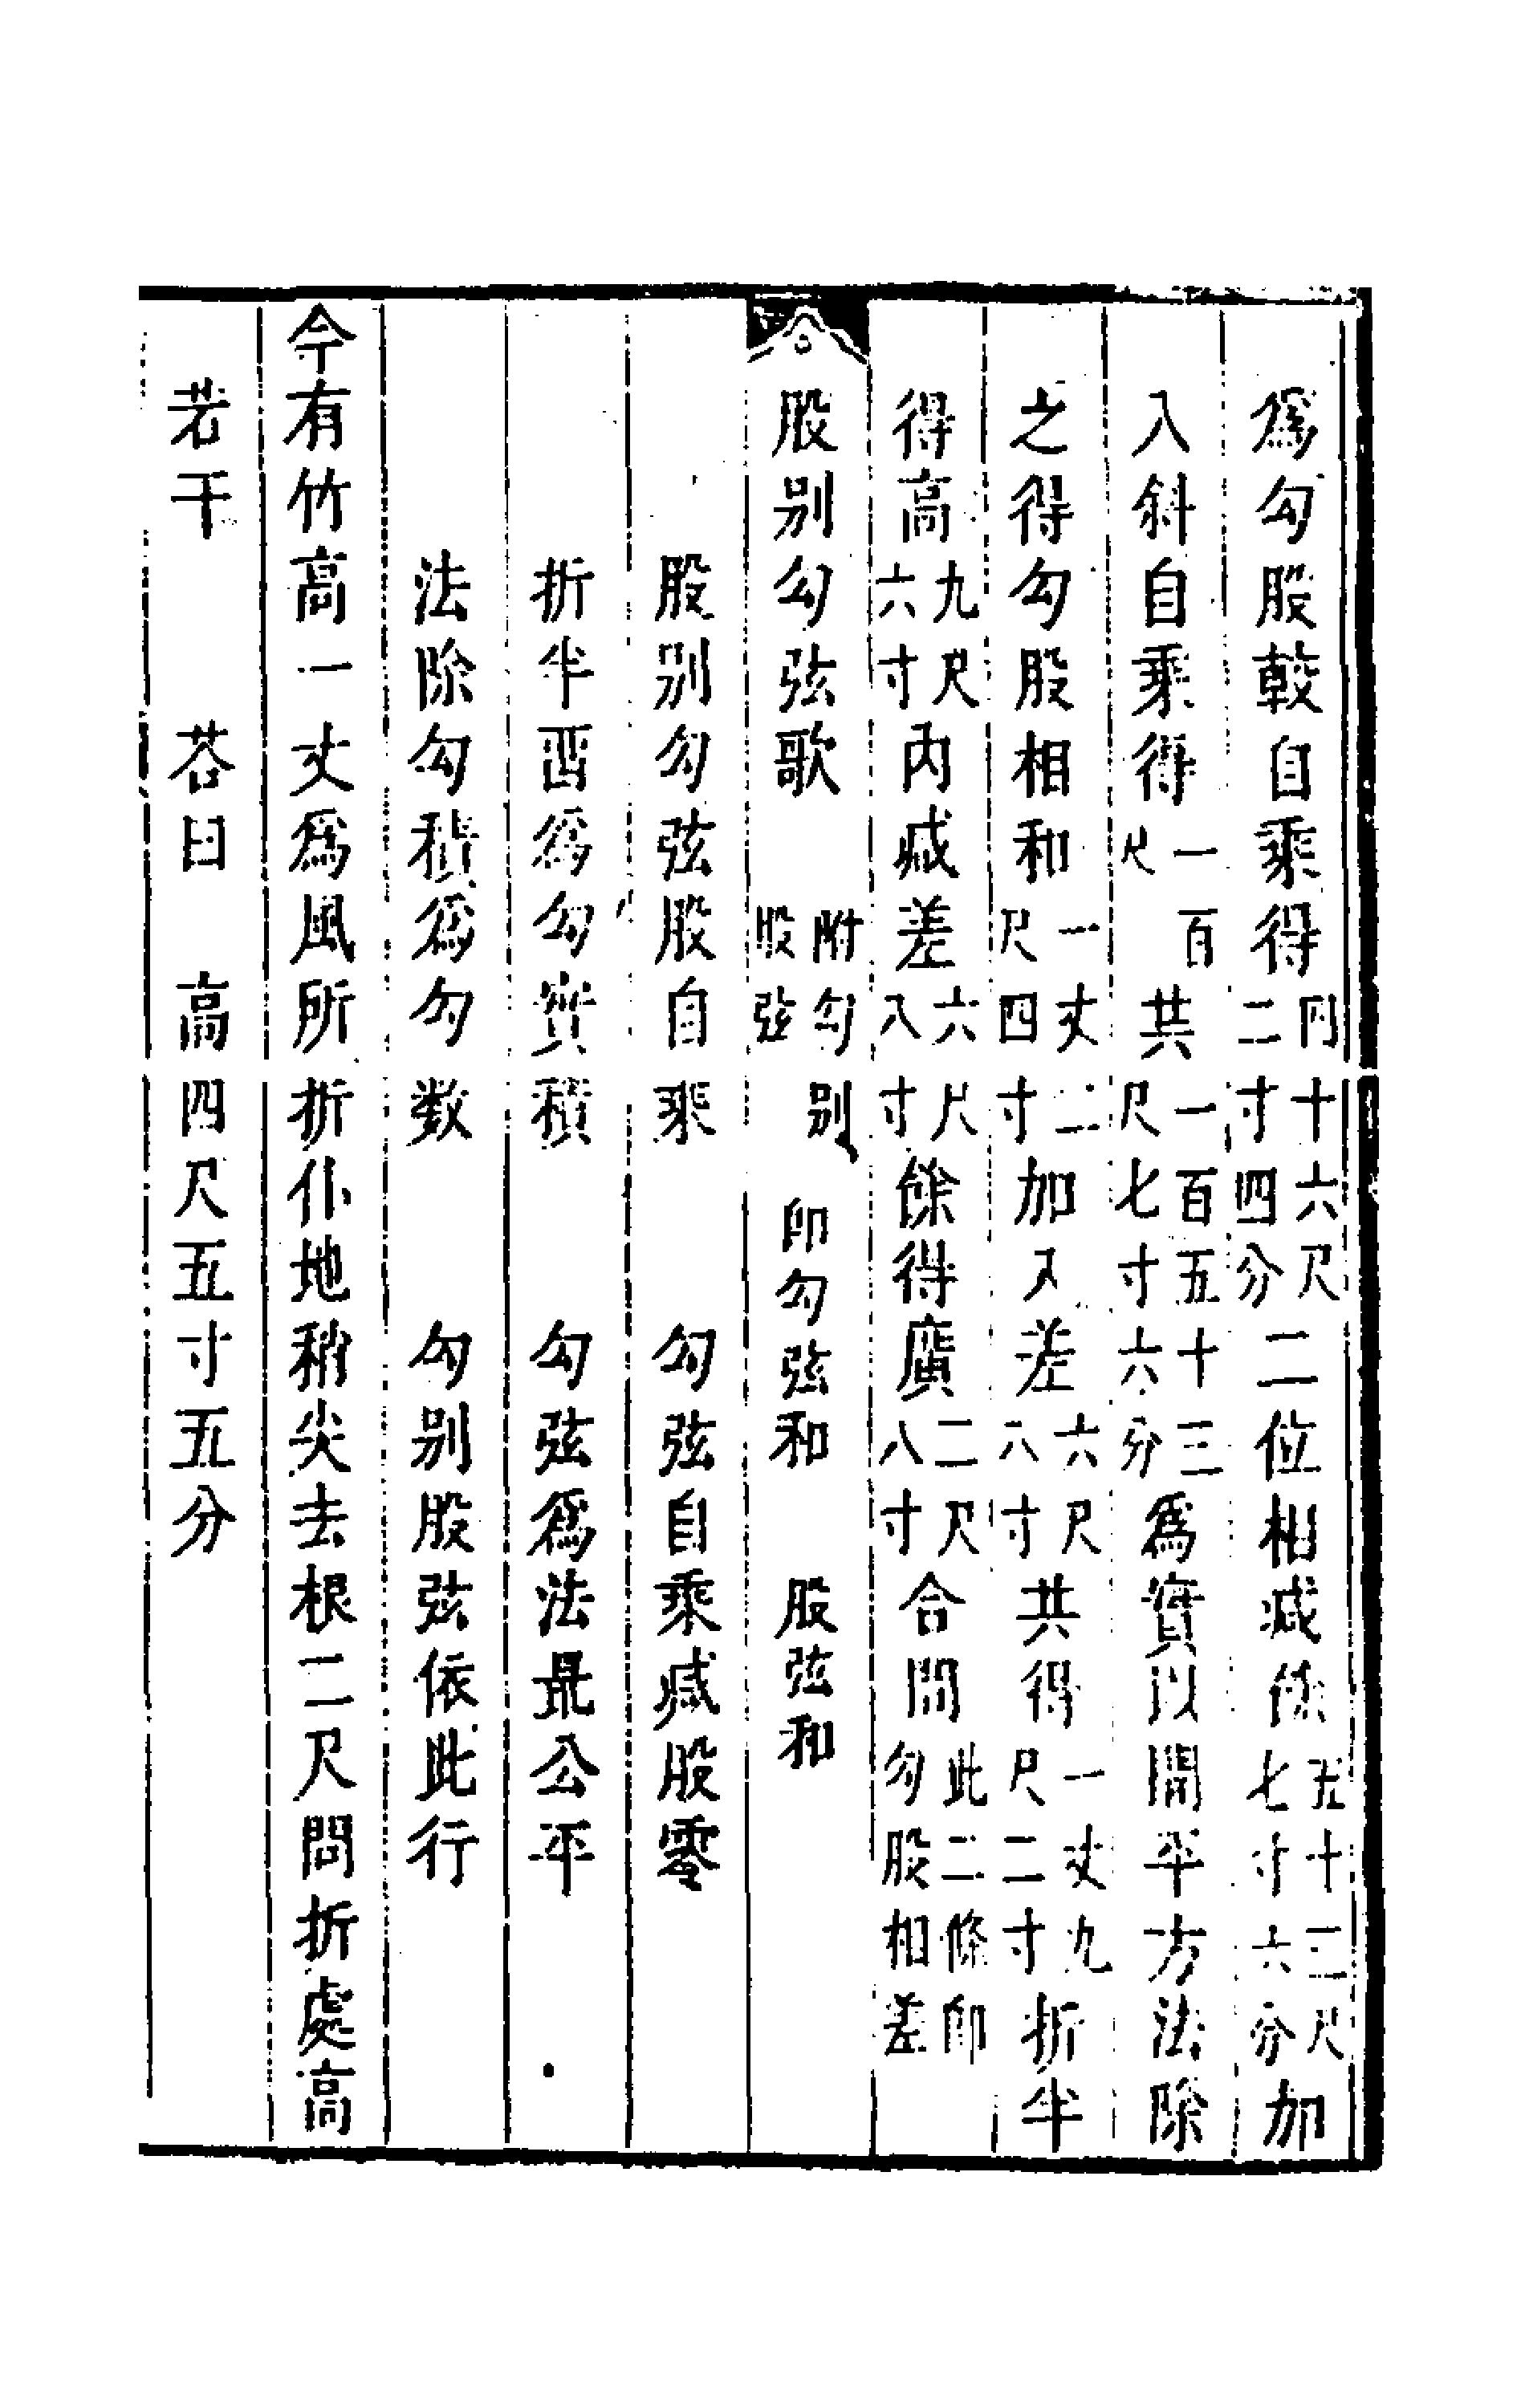 為勾股較自乘得四十六尺二寸四分二位相减餘五十三尺七寸六分加
入斜自乘得一百尺共一百五十三尺七寸六分為實以開平方法除
之得勾股相和一丈二尺四寸加入差六尺八寸共得一丈九尺二寸折半
得高九尺六寸内减差六尺八寸餘得廣二尺八寸合問此二條即勾股相差
股别勾弦歌 附勾别股弦 即勾弦和 股弦和
股别勾弦股自乘 勾弦自乘减股零
折半畱為勾實積 勾弦為法最公平
法除勾積為勾数 勾别股弦依此行
今有竹高一丈為風所折仆地稍尖去根三尺問折處高
若干 荅曰 高四尺五寸五分